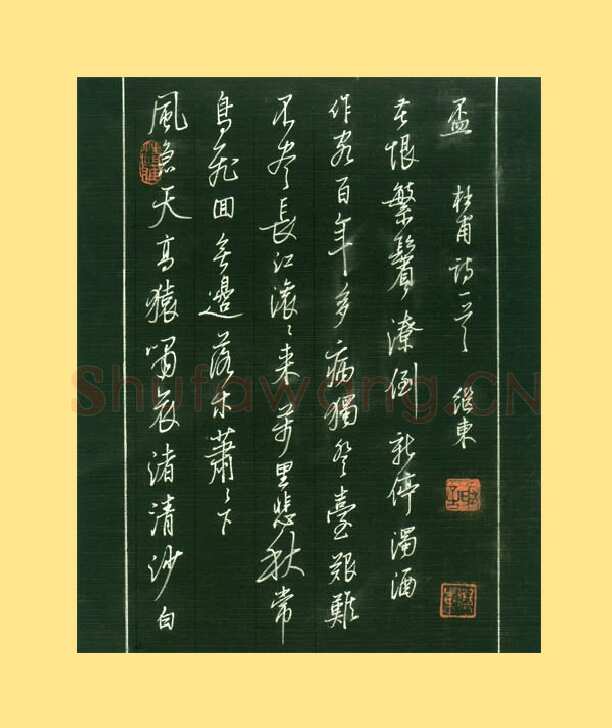 風急天高猿嘯哀渚清沙白
鳥飛回無邊落木蕭〻下
不盡長江滾〻来萬里悲秋常
作客百年多病獨登臺艱難
苦恨繁鬢潦倒新停濁酒
盃 杜甫詩一首 继東
Shufawang.CN